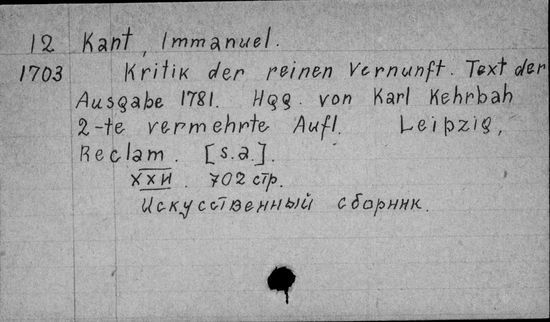 12 Kant, Immanuel.
1703 Kritik der reinen Vernunft. Text der
Ausgabe 1781. Hgg. von Karl Kehrbah
2-te vermehrte Aufl. Leipzig,
Reclam. [s.a.].
XXII. 702 стр.
Искусственный сборник.